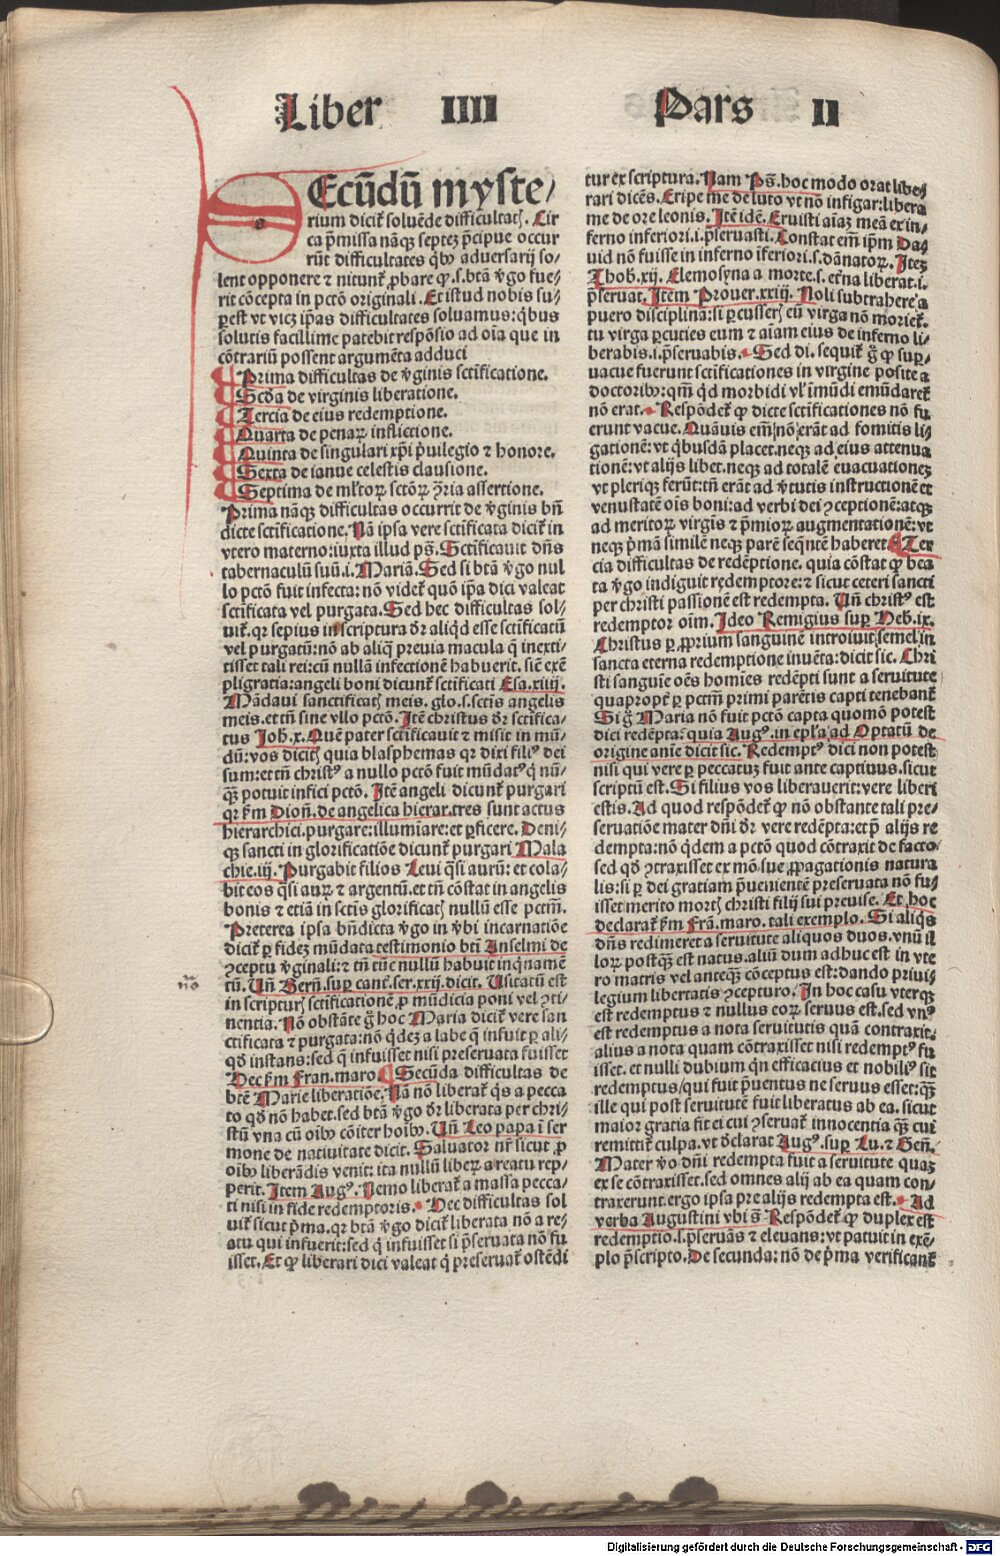 Liber IIII Pars II
SEcūdū myste/
rium dicit᷑ soluēde difficultatꝭ. Cir
ca p̄missa nāqꝫ septeꝫ p̄cipue occur
rūt difficultates qͥbꝰ aduersarij so-
lent opponere ⁊ nitunt᷑ ꝓbare ꝙ .s. btā v̄go fue-
rit cōcepta in pctō originali. Et istud nobis su/
perest vt vicꝫ ip̄as difficultates soluamus: qͥbus
solutis facillime patebit respōsio ad oīa que in
cōtrariū possent argumēta adduci
Prima difficultas de v̄ginis sctificatione.
Scd̄a de virginis liberatione.
Tercia de eius redemptione.
Quarta de penaꝝ inflictione.
Quinta de singulari xp̄i p̄uilegio ⁊ honore.
Sexta de ianue celestis clausione.
Septima de mltoꝝ sctōꝝ ꝯ̄ria assertione.
Prima nāqꝫ difficultas occurrit de v̄ginis bn̄
dicte sctificatione. Nā ipsa vere sctificata dicit᷑ in
vtero materno: iuxta illud ps̄. Sctificauit dn̄s
tabernaculū suū .i. Mariā. Sed si btā v̄go nul
lo pctō fuit infecta: nō videt᷑ quō ip̄a dici valeat
sctificata vel purgata. Sed hec difficultas sol/
uit᷑. qꝛ sepius in scriptura dr̄ aliqͥd esse sctificatū
vel purgatū: nō ab aliqͣ preuia macula q̄ inexti-
tisset tali rei: cū nullā infectionē habuerit. sicut exē
pli gratia: angeli boni dicunt᷑ sctificati Esa. xiij.
Mādaui sanctificatꝭ meis. glo. s. sctis angelis
meis. et tn̄ sine vllo pctō. Itē christus dr̄ sctifica-
tus Joh. x. Quē pater sctificauit ⁊ misit in mū-
dū: vos dicitꝭ quia blasphemas qꝛ dixi filiꝰ dei
sum: et tn̄ christꝰ a nullo pctō fuit mūdatꝰ q̄ nū/
qͣꝫ potuit infici pctō. Itē angeli dicunt᷑ purgari
qꝛ ẜm Dion̄. de angelica hierar. tres sunt actus
hierarchici. purgare: illumiare: et ꝑficere. Deni-
qꝫ sancti in glorificatiōe dicunt᷑ purgari Mala
chie. iij. Purgabit filios Leui q̄si aurū: et cola-
bit eos q̄si auꝝ ⁊ argentū. et tn̄ cōstat in angelis
bonis ⁊ etiā in sctis glorificatꝭ nullū esse pctm̄.
Preterea ipsa bn̄dicta v̄go in v̄bi incarnatiōe
dicit᷑ ꝑ fideꝫ mūdata testimonio btī Anselmi de
ꝯceptu v̄ginali: ⁊ tn̄ tūc nullū habuit inqͥnamē
tū. Vn̄ Bern̄. suꝑ cant̄. ser. xxij. dicit. Usitatū est
in scripturꝭ sctificationē ꝓ mūdicia poni vel ꝯti-
nentia. Nō obstāte g̊ hoc Maria dicit᷑ vere san
ctificata ⁊ purgata: nō qͥdeꝫ a labe q̄ infuit ꝑ ali-
qd̄ instans: sed q̄ infuisset nisi preseruata fuisset
Hec ẜm Fran. maro. Secūda difficultas de
btē Marie liberatiōe. Nā nō liberat᷑ qͥs a pecca
to qd̄ nō habet. sed btā v̄go dr̄ liberata per chri-
stū vna cū oībꝰ cōiter hoībꝰ. Vn̄ Leo papa ī ser
mone de natiuitate dicit. Saluator nr̄ sicut ꝓ
oībꝰ liberādis venit: ita nullū liberꝝ a reatu rep-
perit. Item Augꝰ. Nemo liberat᷑ a massa pecca-
ti nisi in fide redemptoris. Hec difficultas sol
uit᷑ sicut p̄ma. qꝛ btā v̄go dicit᷑ liberata nō a re/
atu qui infuerit: sed q̄ infuisset si p̄seruata nō fu
isset. Et ꝙ liberari dici valeat q̄ preseruat᷑ ostēdi
no
tur ex scriptura. Nam Ps̄. hoc modo orat libe/
rari dicēs. Eripe me de luto vt nō infigar: libera
me de ore leonis. Itē idē. Eruisti aīaꝫ meā ex in/
ferno inferiori .i. p̄seruasti. Constat em̄ ip̄m Da/
uid nō fuisse in inferno īferiori .s. dānatoꝝ. Iteꝫ
Thob. xij. Elemosyna a morte .s. et̄na liberat .i.
p̄seruat. Item Prouer. xxiij. Noli subtrahere a
puero disciplinā: si ꝑcusserꝭ eū virga nō moriet᷑.
tu virga ꝑcuties eum ⁊ aīam eius de inferno li-
berabis .i. p̄seruabis. Sed di. sequit᷑ g̊ ꝙ suꝑ/
uacue fuerunt sctificationes in virgine posite a
doctoribꝰ: qm̄ qͥd morbidi vl̓ īmūdi emūdaret᷑
nō erat. Respōdet᷑ ꝙ dicte sctificationes nō fu
erunt vacue. Quāuis em̄ nō erāt ad fomitis li/
gationē: vt qͥbusdā placet. neqꝫ ad eius attenua
tionē: vt alijs libet. neqꝫ ad totalē euacuationeꝫ
vt plerique ferūt: tn̄ erāt ad v̄tutis instructionē et
venustatē oīs boni: ad verbi dei ꝯceptionē: atqꝫ
ad meritoꝝ virgīs ⁊ p̄mioꝝ augmentationē: vt
neqꝫ p̄mā similē neqꝫ parē seqn̄tē haberet. Ter
cia difficultas de redēptione. quia cōstat ꝙ bea
ta v̄go indiguit redemptore: ⁊ sicut ceteri sancti
per christi passionē est redempta. Vn̄ christꝰ est
redemptor oīm. Ideo Remigius suꝑ Heb. ix.
Christus ꝑ ꝓprium sanguinē introiuit semel in
sancta eterna redemptione inuēta: dicit sic. Chri
sti sanguīe oēs homīes redēpti sunt a seruitute
quapropt̄ ꝑ pctm̄ primi parētis capti tenebant᷑
Si g̊ Maria nō fuit pctō capta quomō potest
dici redēpta: quia Augꝰ. in epl̓a ad Optatū de
origine anīe dicit sic. Redemptꝰ dici non potest
nisi qui vere ꝑ peccatuꝫ fuit ante captiuus. sicut
scriptū est. Si filius vos liberauerit: vere liberi
estis. Ad quod respōdet᷑ ꝙ nō obstante tali pre/
seruatiōe mater dn̄i dr̄ vere redēpta: et p̄ alijs re
dempta: nō qͥdem a pctō quod cōtraxit de facto
sed qd̄ ꝯtraxisset ex mō sue ꝓpagationis natura
lis: si ꝑ dei gratiam p̄uenientē preseruata nō fu/
isset merito mortꝭ christi filij sui preuise. Et hoc
declarat᷑ ẜm Frā. maro. tali exemplo. Si aliqͥs
dn̄s redimeret a seruitute aliquos duos. vnū il
loꝝ postqͣꝫ est natus. aliū dum adhuc est in vte
ro matris vel anteqͣꝫ cōceptus est: dando priui/
legium libertatis ꝯcepturo. In hoc casu vterqꝫ
est redemptus ⁊ nullus eoꝝ seruus est. sed vnꝰ
est redemptus a nota seruitutis quā contraxit.
alius a nota quam cōtraxisset nisi redemptꝰ fu
isset. et nulli dubium qn̄ efficacius et nobiliꝰ sit
redemptus/ qui fuit p̄uentus ne seruus esset: qͣꝫ
ille qui post seruitutē fuit liberatus ab ea. sicut
maior gratia fit ei cui ꝯseruat᷑ innocentia qͣꝫ cui
remittit᷑ culpa. vt dclarat Augꝰ. suꝑ Lu. ⁊ Gen̄.
Mater v̄o dn̄i redempta fuit a seruitute quaꝫ
ex se cōtraxisset. sed omnes alij ab ea quam con-
traxerunt. ergo ipsa pre alijs redempta est. Ad
verba Augustini vbi s̄ Respōdet᷑ ꝙ duplex est
redemptio .s. p̄seruās ⁊ eleuans: vt patuit in exē-
plo p̄scripto. De secunda: nō de p̄ma verificant᷑
Digitalisierung gefördert durch die Deutsche Forschungsgemeinschaft - DFG